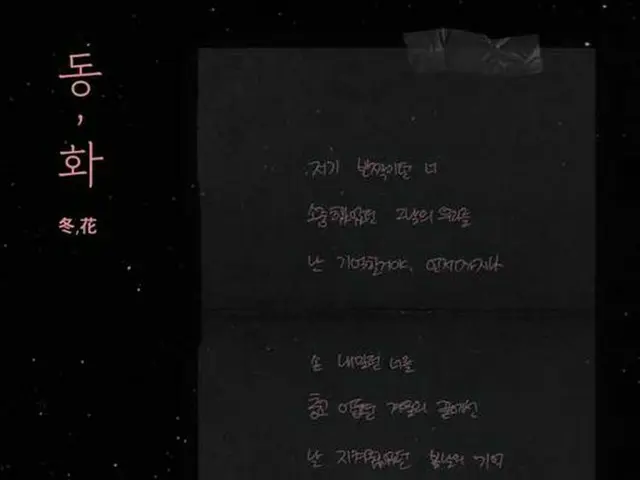 동,화
冬,花
저기 반짝이던 너
소중했었던 그날의 우리를
난 기억할거야, 언제까지나
손 내밀던 너를
춥고 아팠던 겨울의 끝에선
난 지켜줬었던 봄날의 기억